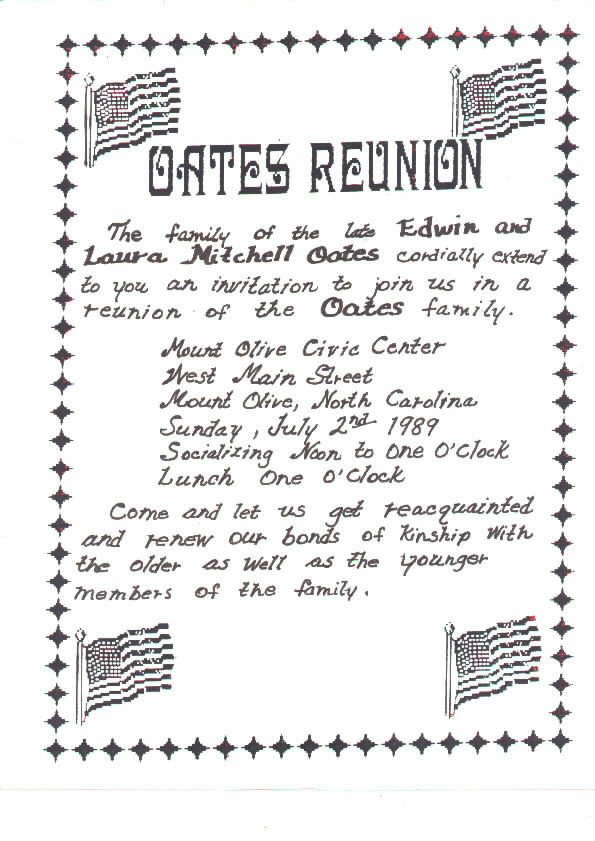 OATES REUNION
The family of the late Edwin and
Laura Mitchell Oates cordially extend
to you an invitation to join us in a
reunion of the Oates family.
Mount Olive Civic Center
West Main Street
Mount Olive, North Carolina
Sunday, July 2nd 1989
Socializing Noon to One O'Clock
Lunch One O'Clock
Come and let us get reacquainted
and renew our bonds of kinship with
the older as well as the younger
members of the family.